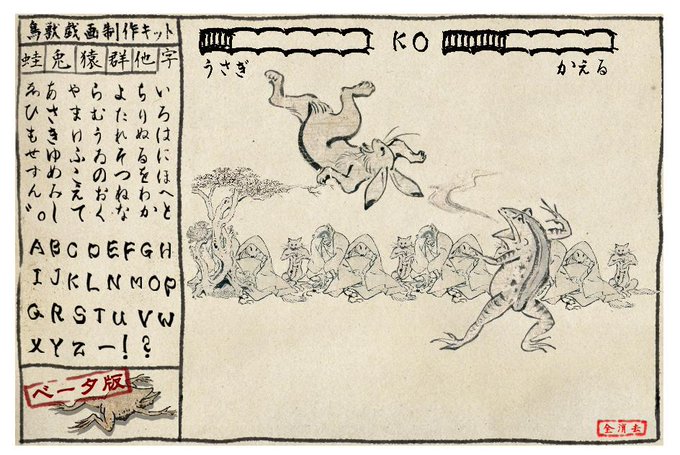 鳥獣戯画制作キット
蛙 兎 猿 群 他 字
いろはにほへと
ちりぬるをわか
よたれそつねな
らむうゐのおく
やまけふこえて
あさきゆめみし
ゑひもせすん゛。
A B C D E F G H
I J K L N M O P
Q R S T U V W
X Y Z ー ! ?
ベータ版
KO
うさぎ
かえる
全消去